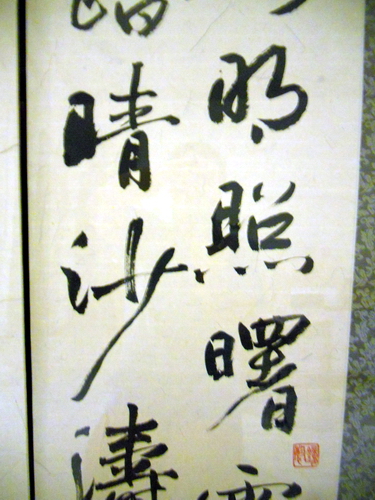 明照曙
晴沙濤